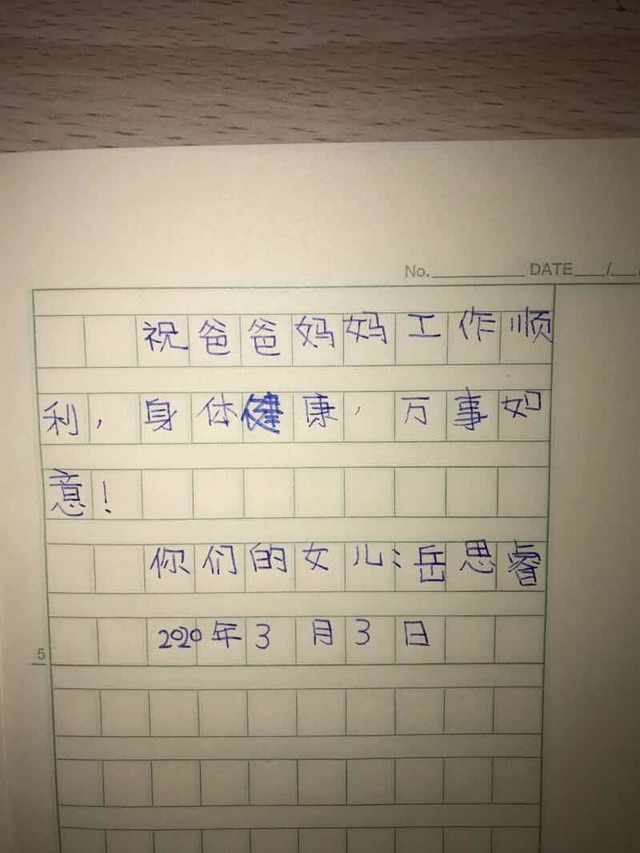 No.________ DATE___/___/
祝爸爸妈妈工作顺
利，身体健康，万事如
意！
你们的女儿：岳思睿
2020年3月3日
5